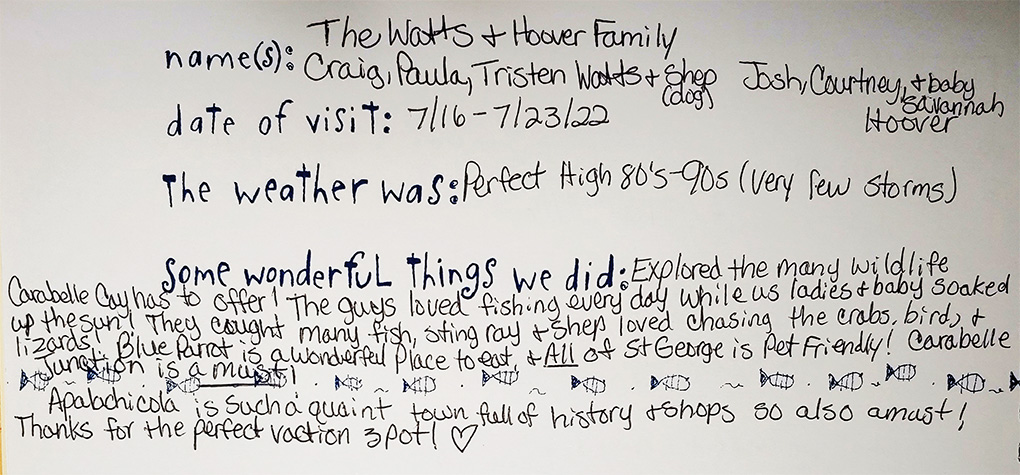 The Watts + Hoover Family
name(s): Craig, Paula, Tristen Watts + Shep (dog) Josh, Courtney, + baby Savannah Hoover
date of visit: 7/16 - 7/23/22
The weather was: Perfect High 80's-90s (very few storms)
Some wonderful things we did: Explored the many wildlife
Carabelle Cay has to offer! The guys loved fishing every day while us ladies + baby soaked
up the sun! They caught many fish, sting ray + Shep loved chasing the crabs, birds, +
lizards! Blue Parrot is a wonderful Place to eat, + All of St George is Pet Friendly! Carabelle
Junction is a must!
Apalachicola is such a quaint town full of history + shops so also a must!
Thanks for the perfect vaction spot! ♡